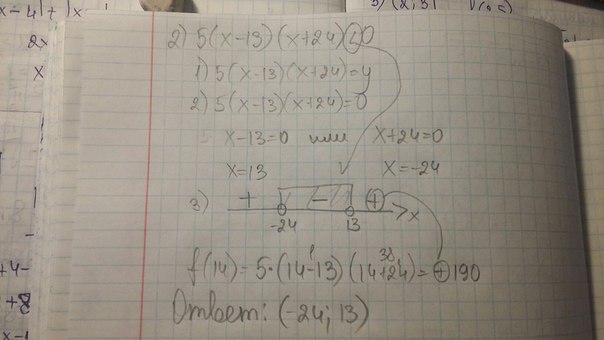 2) 5(x-13)(x+24)<0
1) 5(x-13)(x+24)=y
2) 5(x-13)(x+24)=0
x-13=0 или x+24=0
x=13 x=-24
3) + - + x
-24 13
1 38
f(14)=5·(14-13)(14+24)=+190
Ответ: (-24; 13)